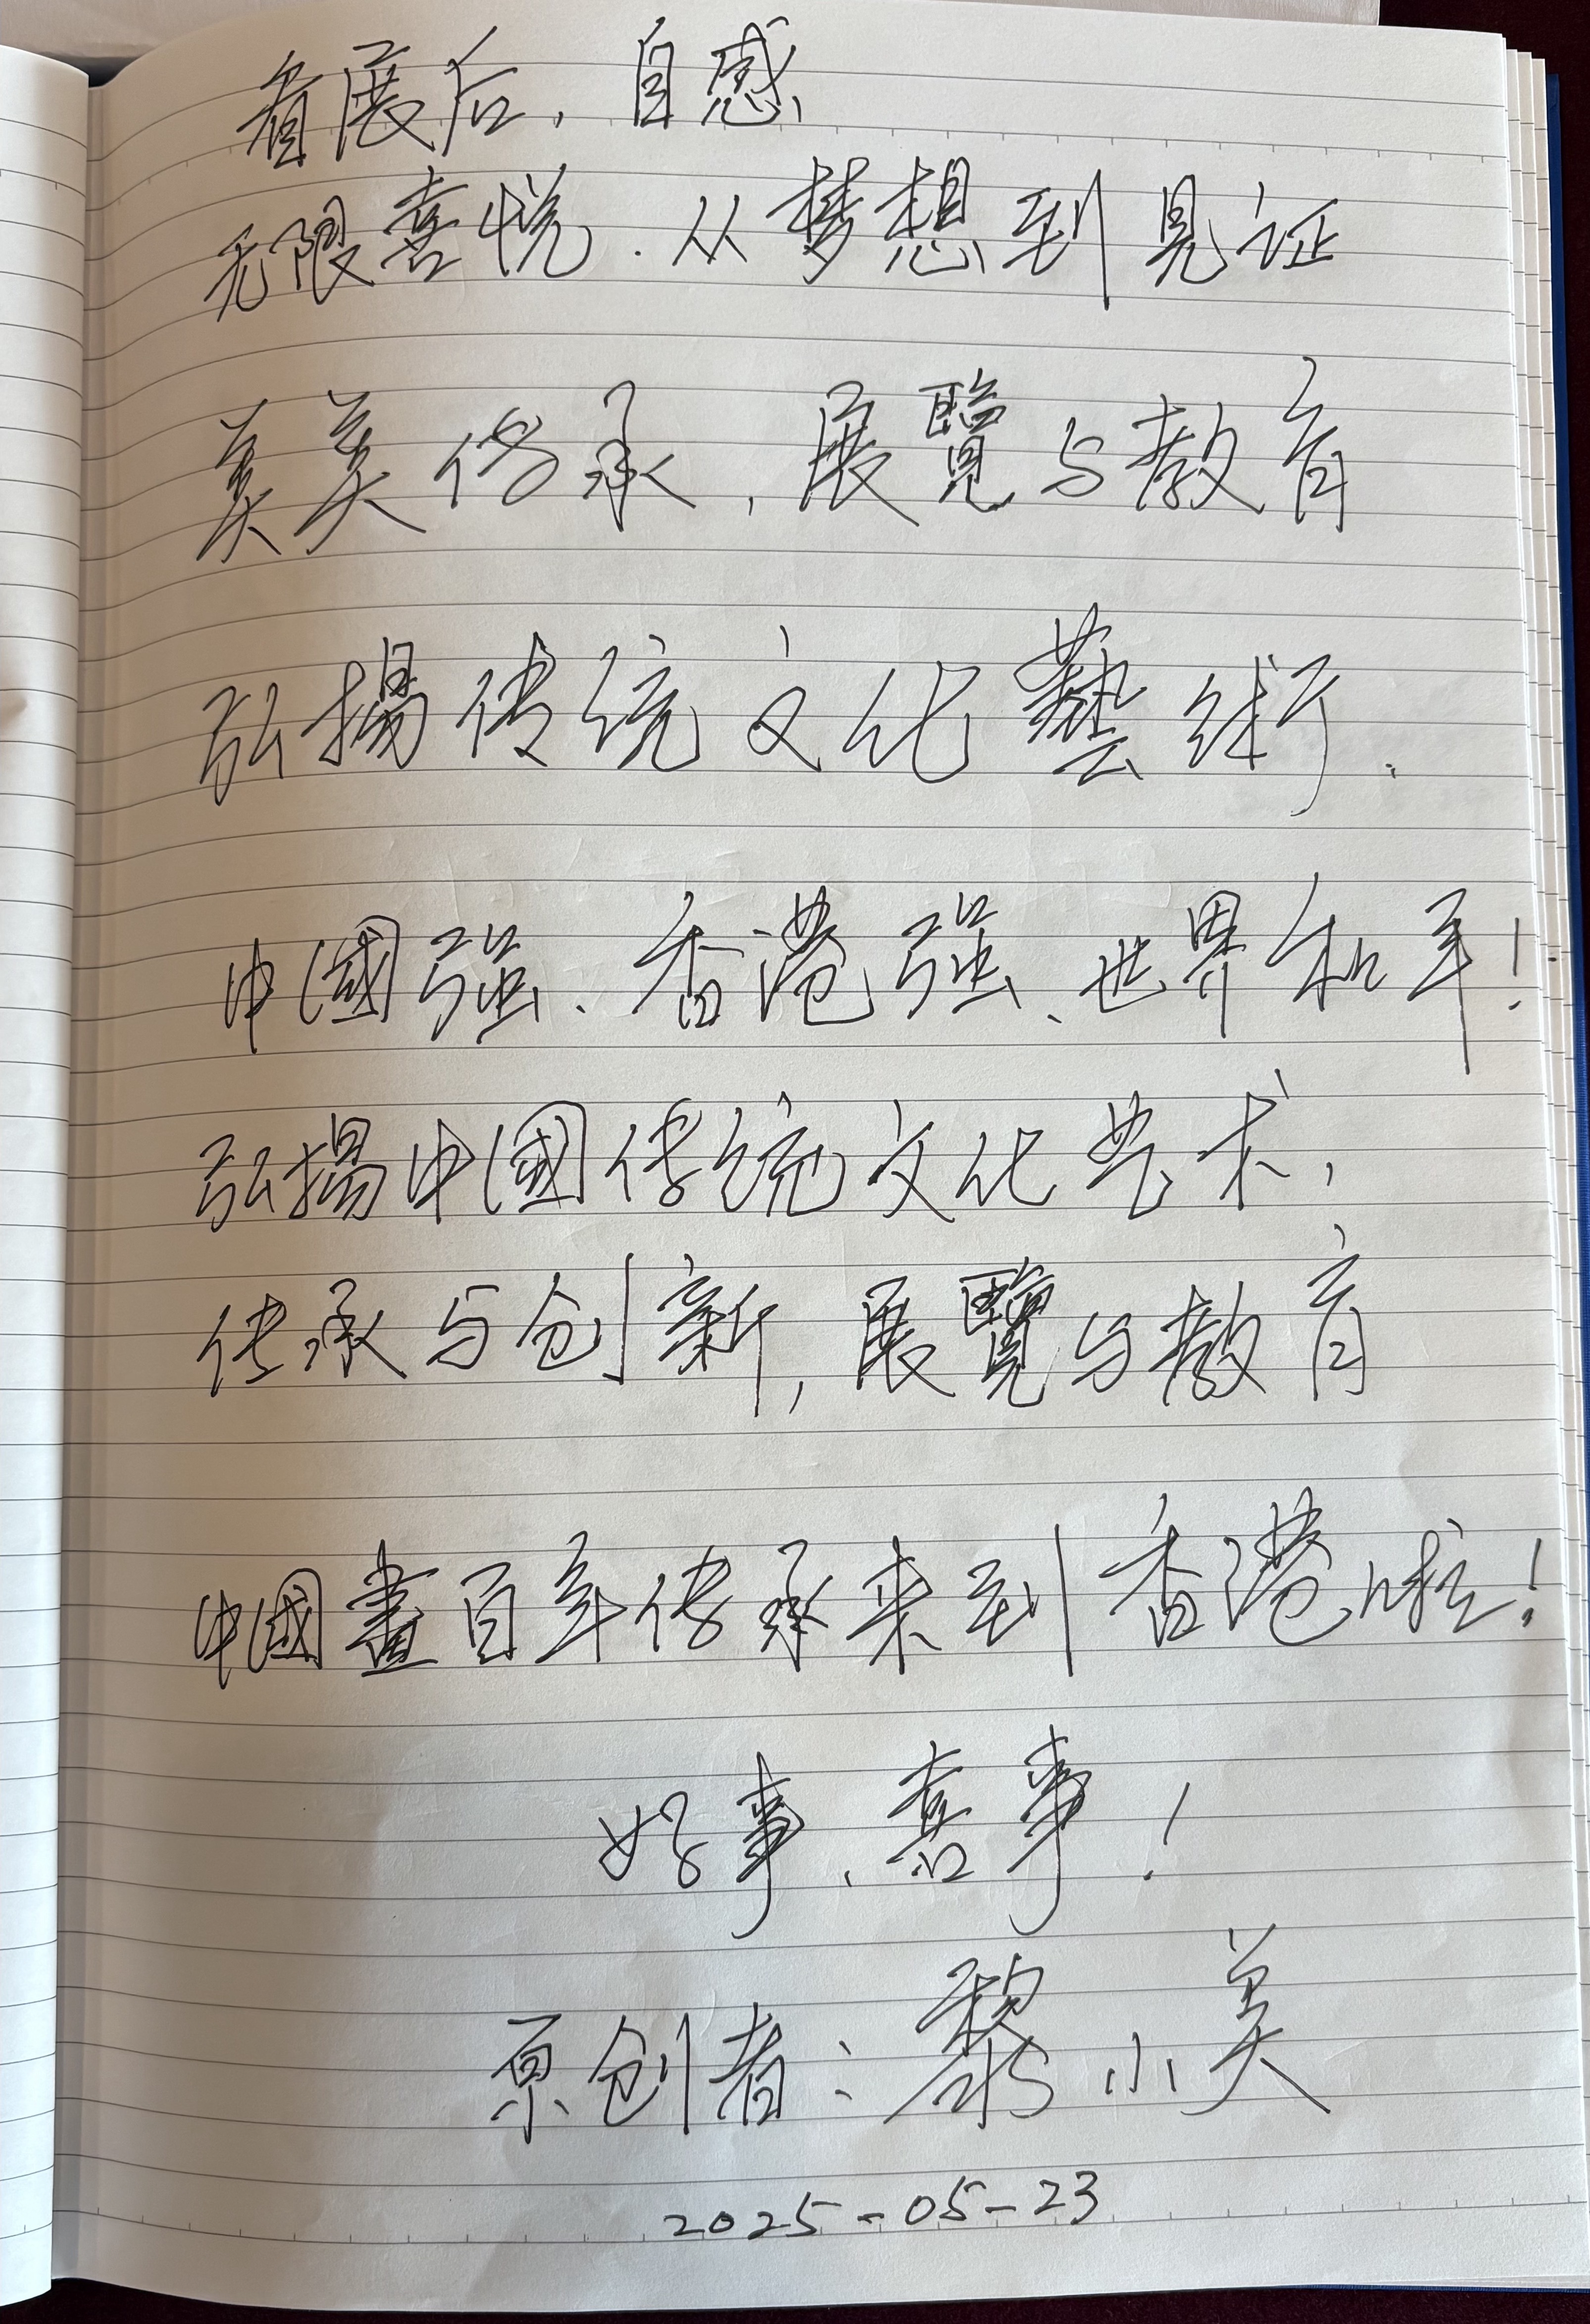 看展后，自感
无限喜悦．从梦想到见证
美美传承，展覽与教育
弘揚传统文化藝術．
中國强、香港强、世界和平！
弘揚中國传统文化艺术，
传承与创新，展覽与教育
中國畫百年传承来到香港啦！
好事、喜事！
原创者：黎小美
2025-05-23